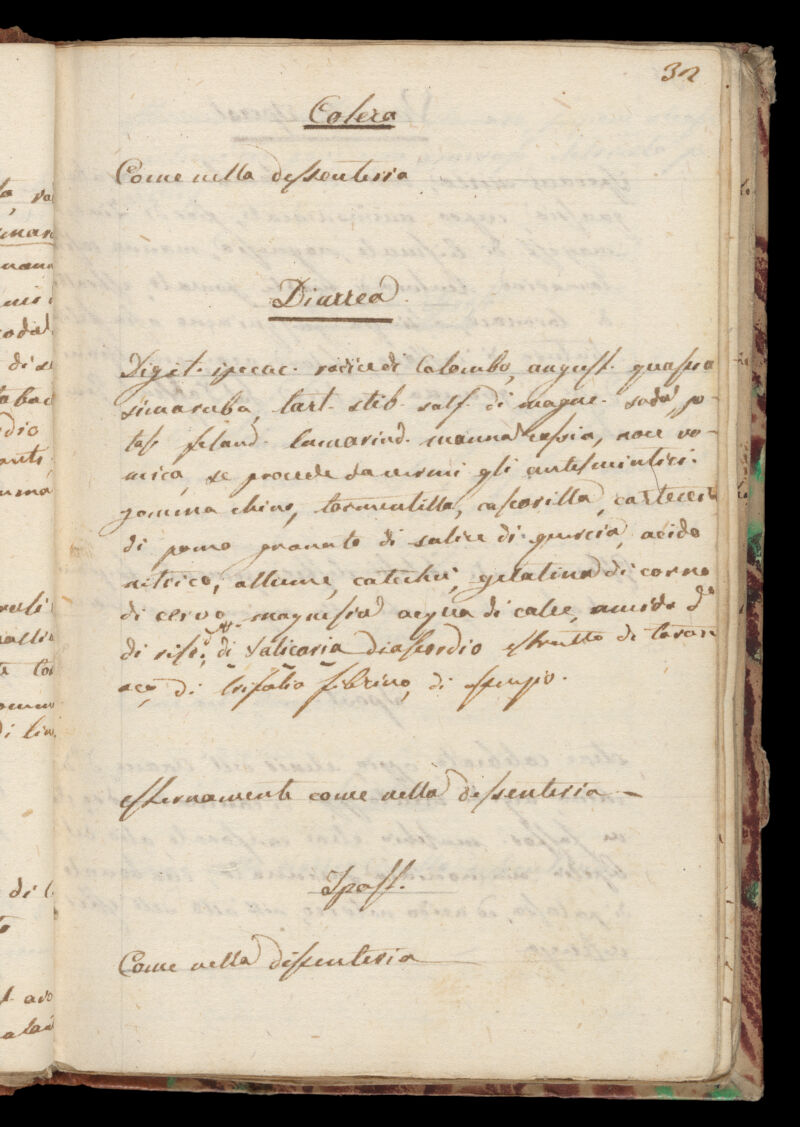 32
Colera
Come nella dissenteria
Diarrea
Digit. ipecac. radice di Colombo, angust. quassia
simaruba, tart. stib. solf. di magne. soda, po-
tas feland. tamarind. manna cassia, noce vo-
mica, se procede da vermi gli antelmintici.
gomma chino, tormentilla, cascarilla, cortecci
di pomo granato di salice di quercia, acido
nitrico, allume, catechù, gelatina di corno
di cervo magnesia acqua di calce, amido d°
di riso, di Salicaria diascordio estratto di taras
aco, di trifolio fibrino, di
esternamente come nella dissenteria
Come nella dissenteria